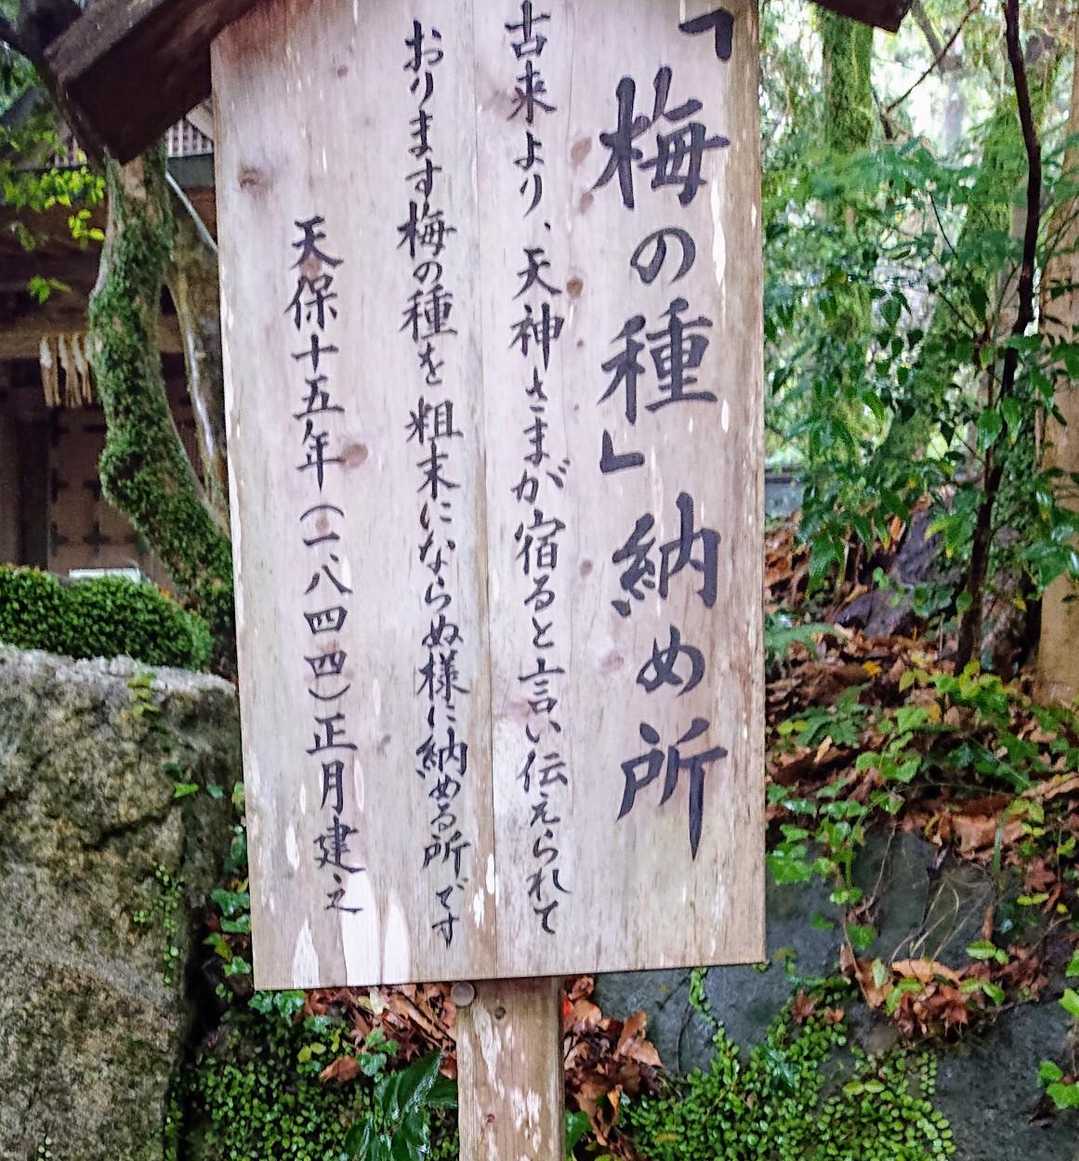 「梅の種」納め所
古来より、天神さまが宿ると言い伝えられて
おります梅の種を粗末にならぬ様に納める所です
天保十五年（一八四四）正月建之